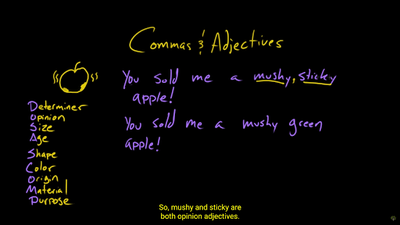 Commas & Adjectives
You sold me a mushy, sticky
apple!
You sold me a mushy green
apple!
Determiner
Opinion
Size
Age
Shape
Color
Origin
Material
Purpose
So, mushy and sticky are
both opinion adjectives.